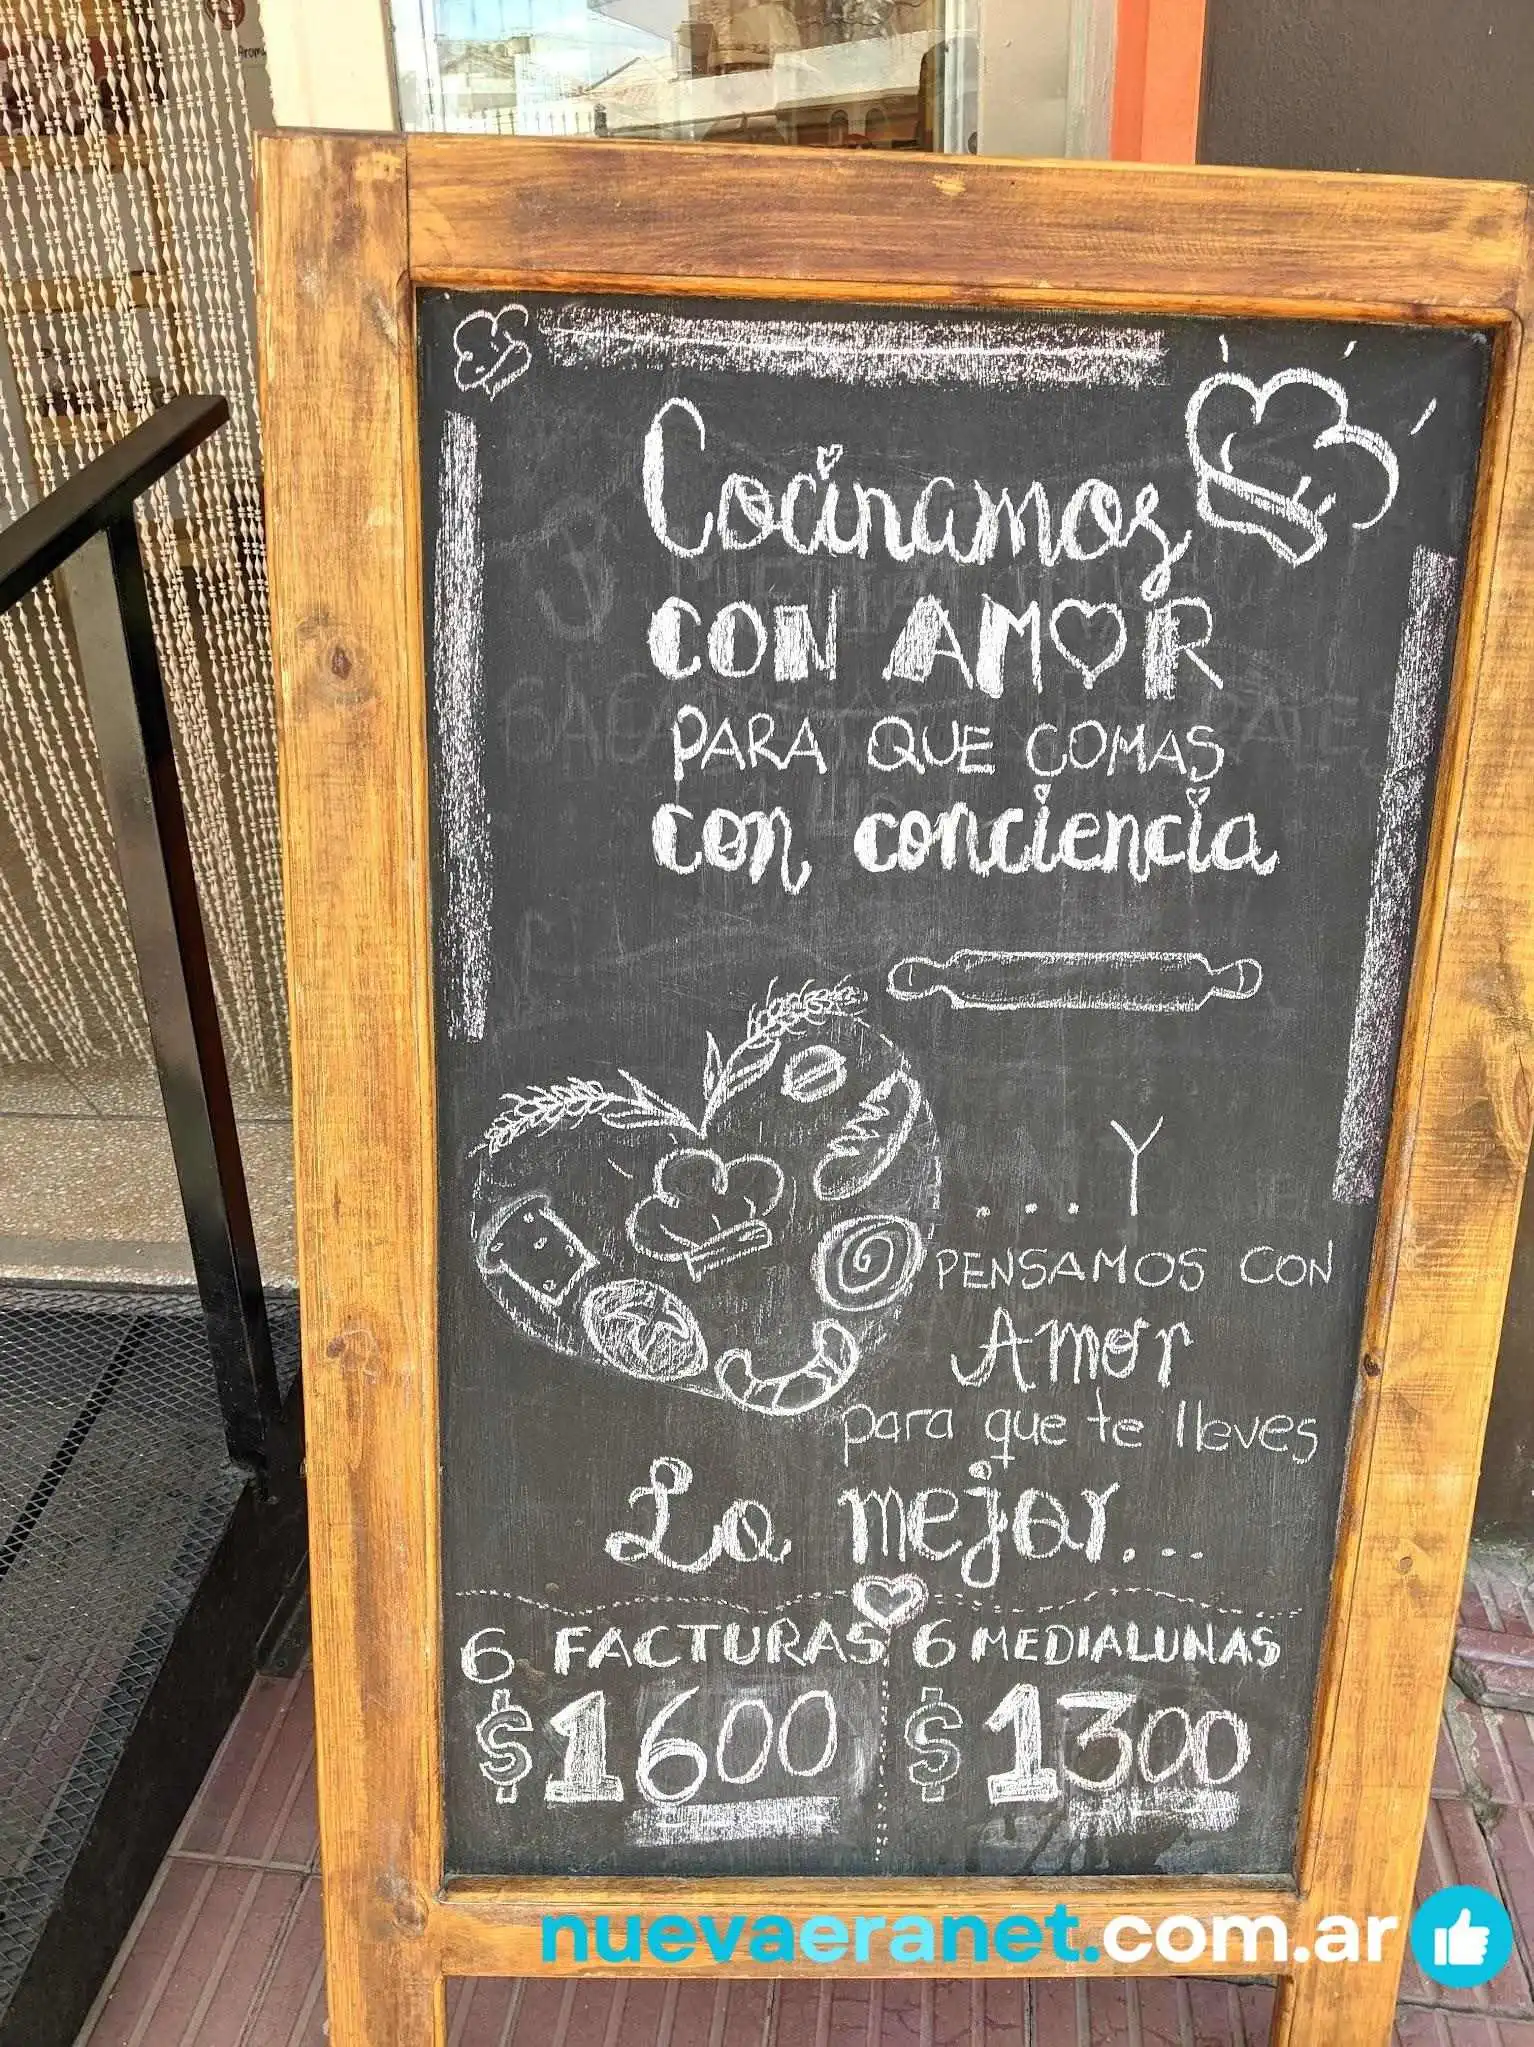 Cocinamos
CON AMOR
PARA QUE COMAS
con conciencia
... Y
PENSAMOS CON
Amor
para que te lleves
Lo mejor...
6 FACTURAS
$1600
6 MEDIALUNAS
$1300
nuevaeranet.com.ar